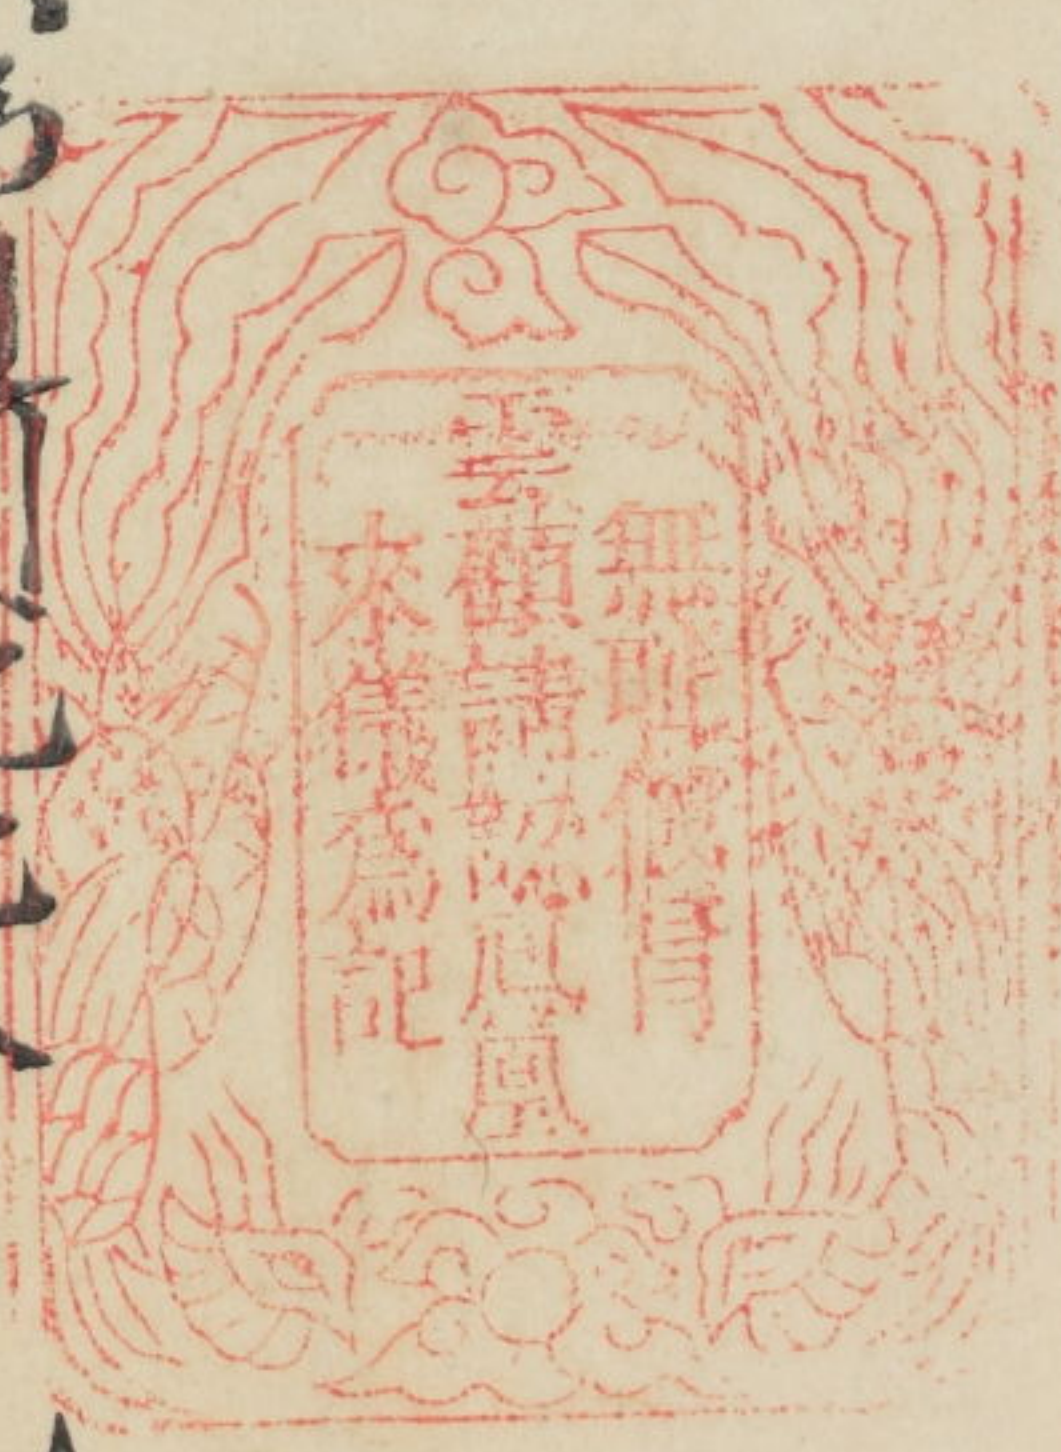 無耻假冒
雲顧請認鳳凰
來儀為記